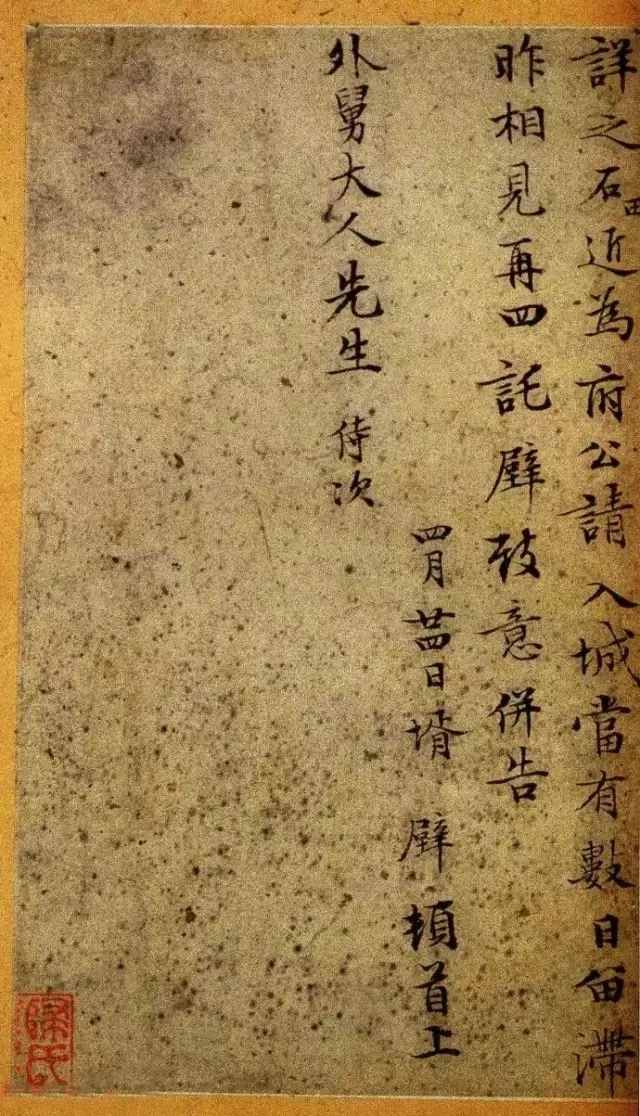 詳之石田近為府公請入城當有數日留滯
昨相見再四託壁致意併告
四月廿四日壻 壁 頓首上
外舅大人先生 侍次